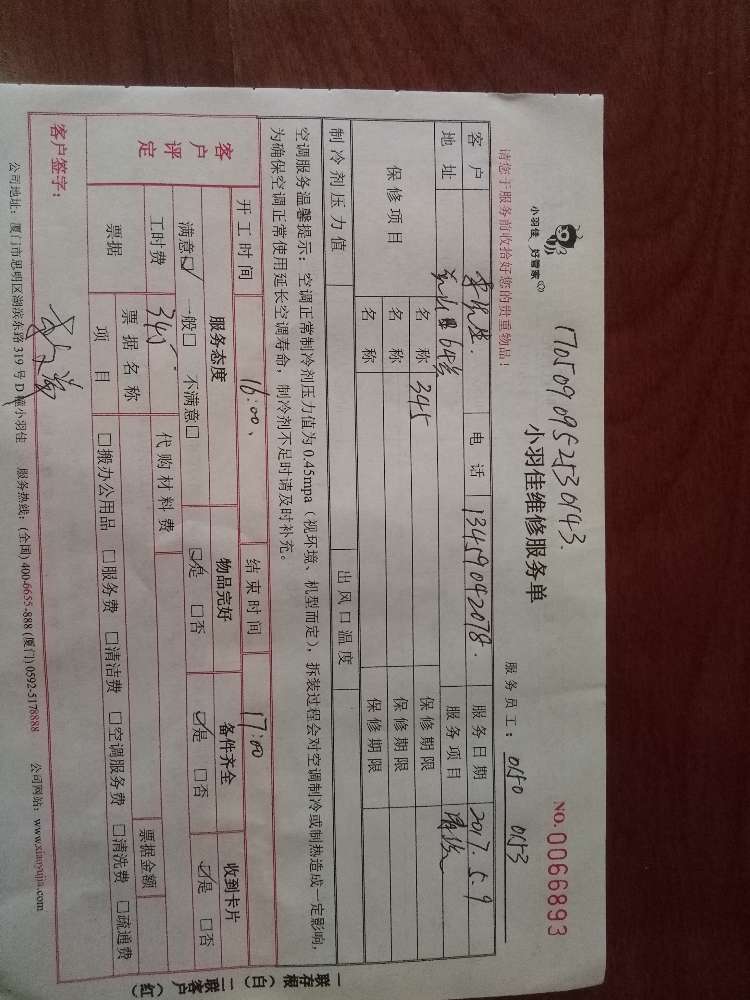 1705090952530143.
小羽佳 好管家
小羽佳维修服务单
NO. 0066893
请您于服务前收拾好您的贵重物品！
服务员工： 0150 0153
客户 电话 13459042078. 服务日期 2017.5.9
地址 64号 服务项目 清洗
保修项目 名称 345 保修期限
名称 保修期限
名称 保修期限
制冷剂压力值 出风口温度
空调服务温馨提示：空调正常制冷剂压力值为0.45mpa（视环境、机型而定），拆装过程会对空调制冷或制热造成一定影响，
为确保空调正常使用延长空调寿命，制冷剂不足时请及时补充。
开工时间 16:00、 结束时间 17:00
客户评定 服务态度 物品完好 备件齐全 收到卡片
满意☑ 一般□ 不满意□ ☑是 □否 ☑是 □否 ☑是 □否
工时费 345 代购材料费
票据 票据名称 票据金额
项目 □搬办公用品 □服务费 □清洁费 □空调服务费 □清洗费 □疏通费
客户签字：
公司地址：厦门市思明区湖滨东路319号D幢小羽佳 服务热线：(全国) 400-6655-888 (厦门) 0592-5178888 公司网站：www.xiaoyujia.com
一联存根（白）二联客户（红）